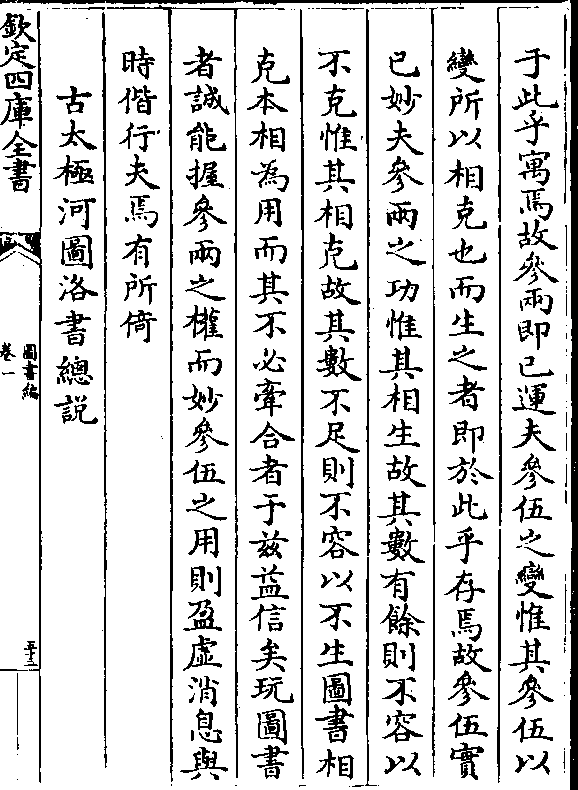 于此乎寓焉故參兩即已運夫參伍之變惟其參伍以
變所以相克也而生之者即於此乎存焉故參伍實
已妙夫參兩之功惟其相生故其數有餘則不容以
不克惟其相克故其數不足則不容以不生圖書相
克本相為用而其不必牽合者于兹益信矣玩圖書
者誠能握參兩之權而妙參伍之用則盈虛消息與
時偕行夫焉有所倚
古太極河圖洛書總説
欽定四庫全書
圖書編
卷一